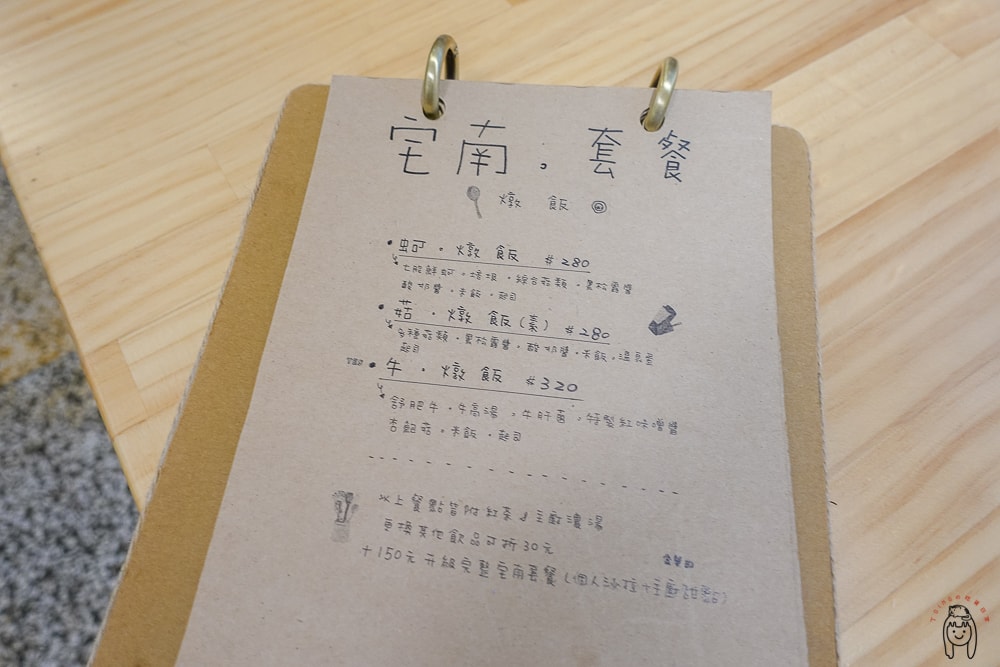 宅南。套餐
燉飯
蚵。燉飯 $280
七股鮮蚵。 綜合菇類。黑松露醬
酸奶醬。米飯。起司
菇。燉飯(素) $280
多種菇類。黑松露醬。酸奶醬。米飯。溫泉蛋
起司
牛。燉飯 $320
舒肥牛。牛高湯。牛肝菌。特製紅味噌醬
杏鮑菇。米飯。起司
以上餐點皆附紅茶&主廚濃湯
更換其他飲品可折30元
+150元升級完整宅南套餐(個人沙拉+主廚甜點)